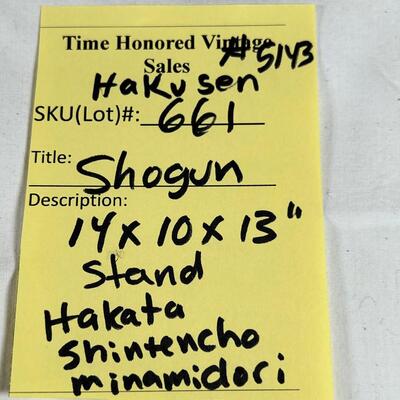 Time Honored Vintage #5143
Sales
Hakusen
SKU(Lot)#: 661
Title: Shogun
Description:
14 x 10 x 13"
Stand
Hakata
Shintencho
minamidori